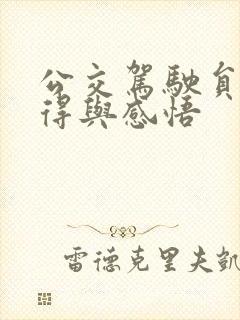 公交駕駛員
得與感悟
雷德克里夫凱